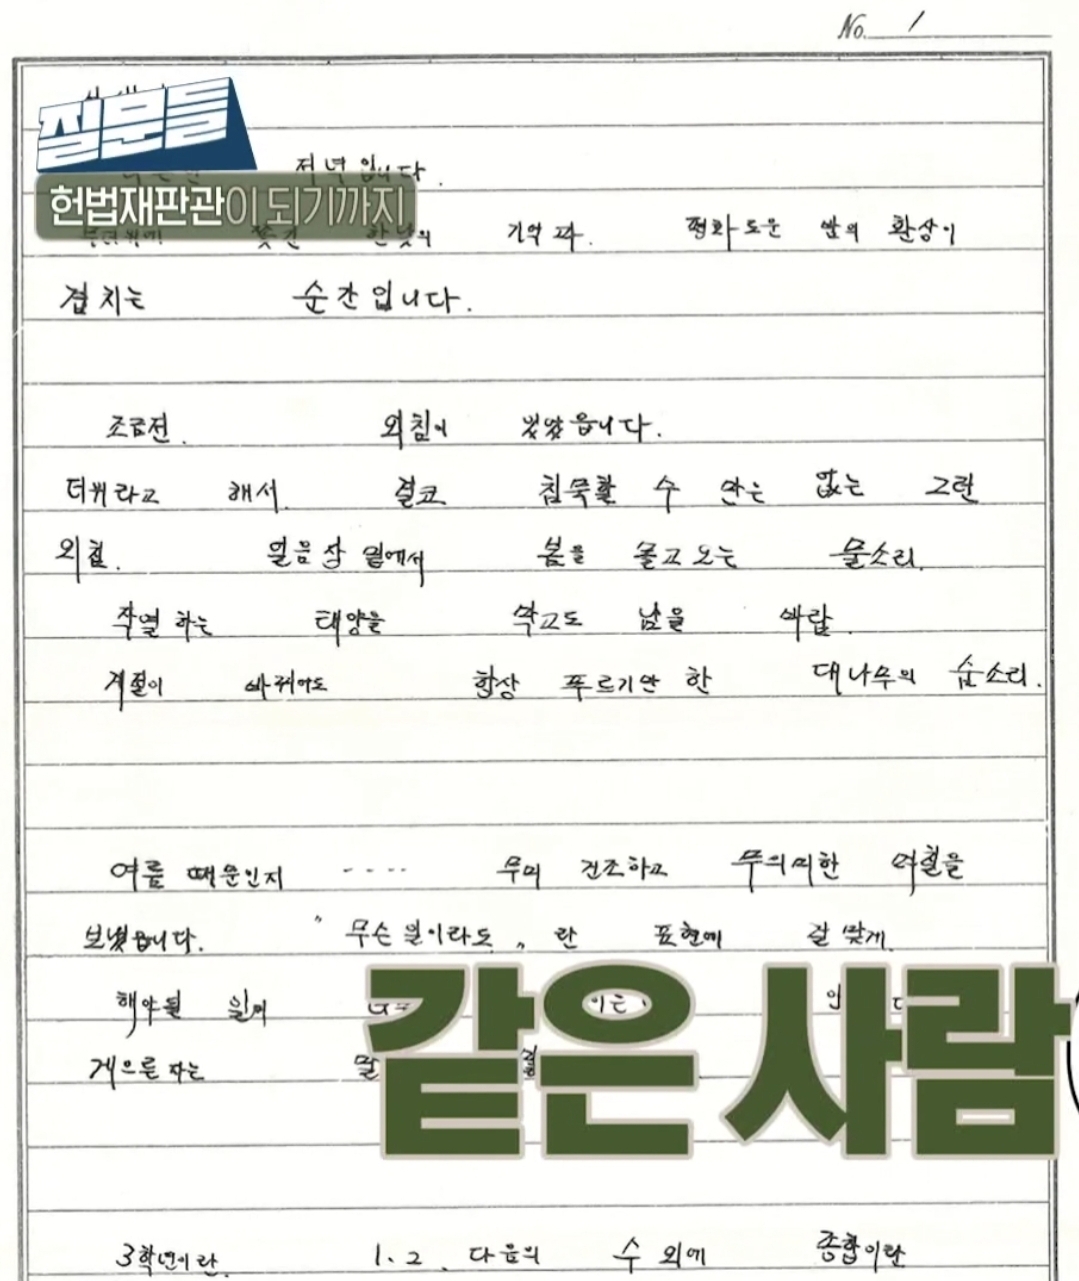 No. 1
질문들
저녁입니다.
헌법재판관이 되기까지
기억과. 평화로운 밤의 환상이
겹치는 순간입니다.
조금전. 외침이 있었읍니다.
더위라고 해서. 결코 침묵할 수 만은 없는 그런
외침. 얼음장 밑에서 봄을 몰고오는 물소리.
작열하는 태양을 삭고도 남을 바람.
계절이 바뀌어도 항상 푸르기만 한 대나무의 숨소리.
여름 때문인지 ---- 무척 건조하고 무의미한 여름을
보냈읍니다. " 무슨 일이라도 " 란 표현에 걸맞게.
해야될 일에
게으른 자는
같은 사람
3학년이란. 1. 2. 다음의 수 외에 종합이란